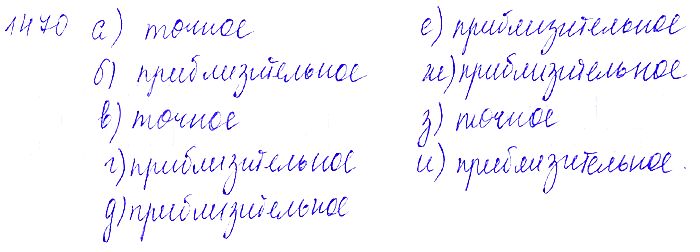 1470 а) точное
б) приблизительное
в) точное
г) приблизительное
д) приблизительное
е) приблизительное
ж) приблизительное
з) точное
и) приблизительное.